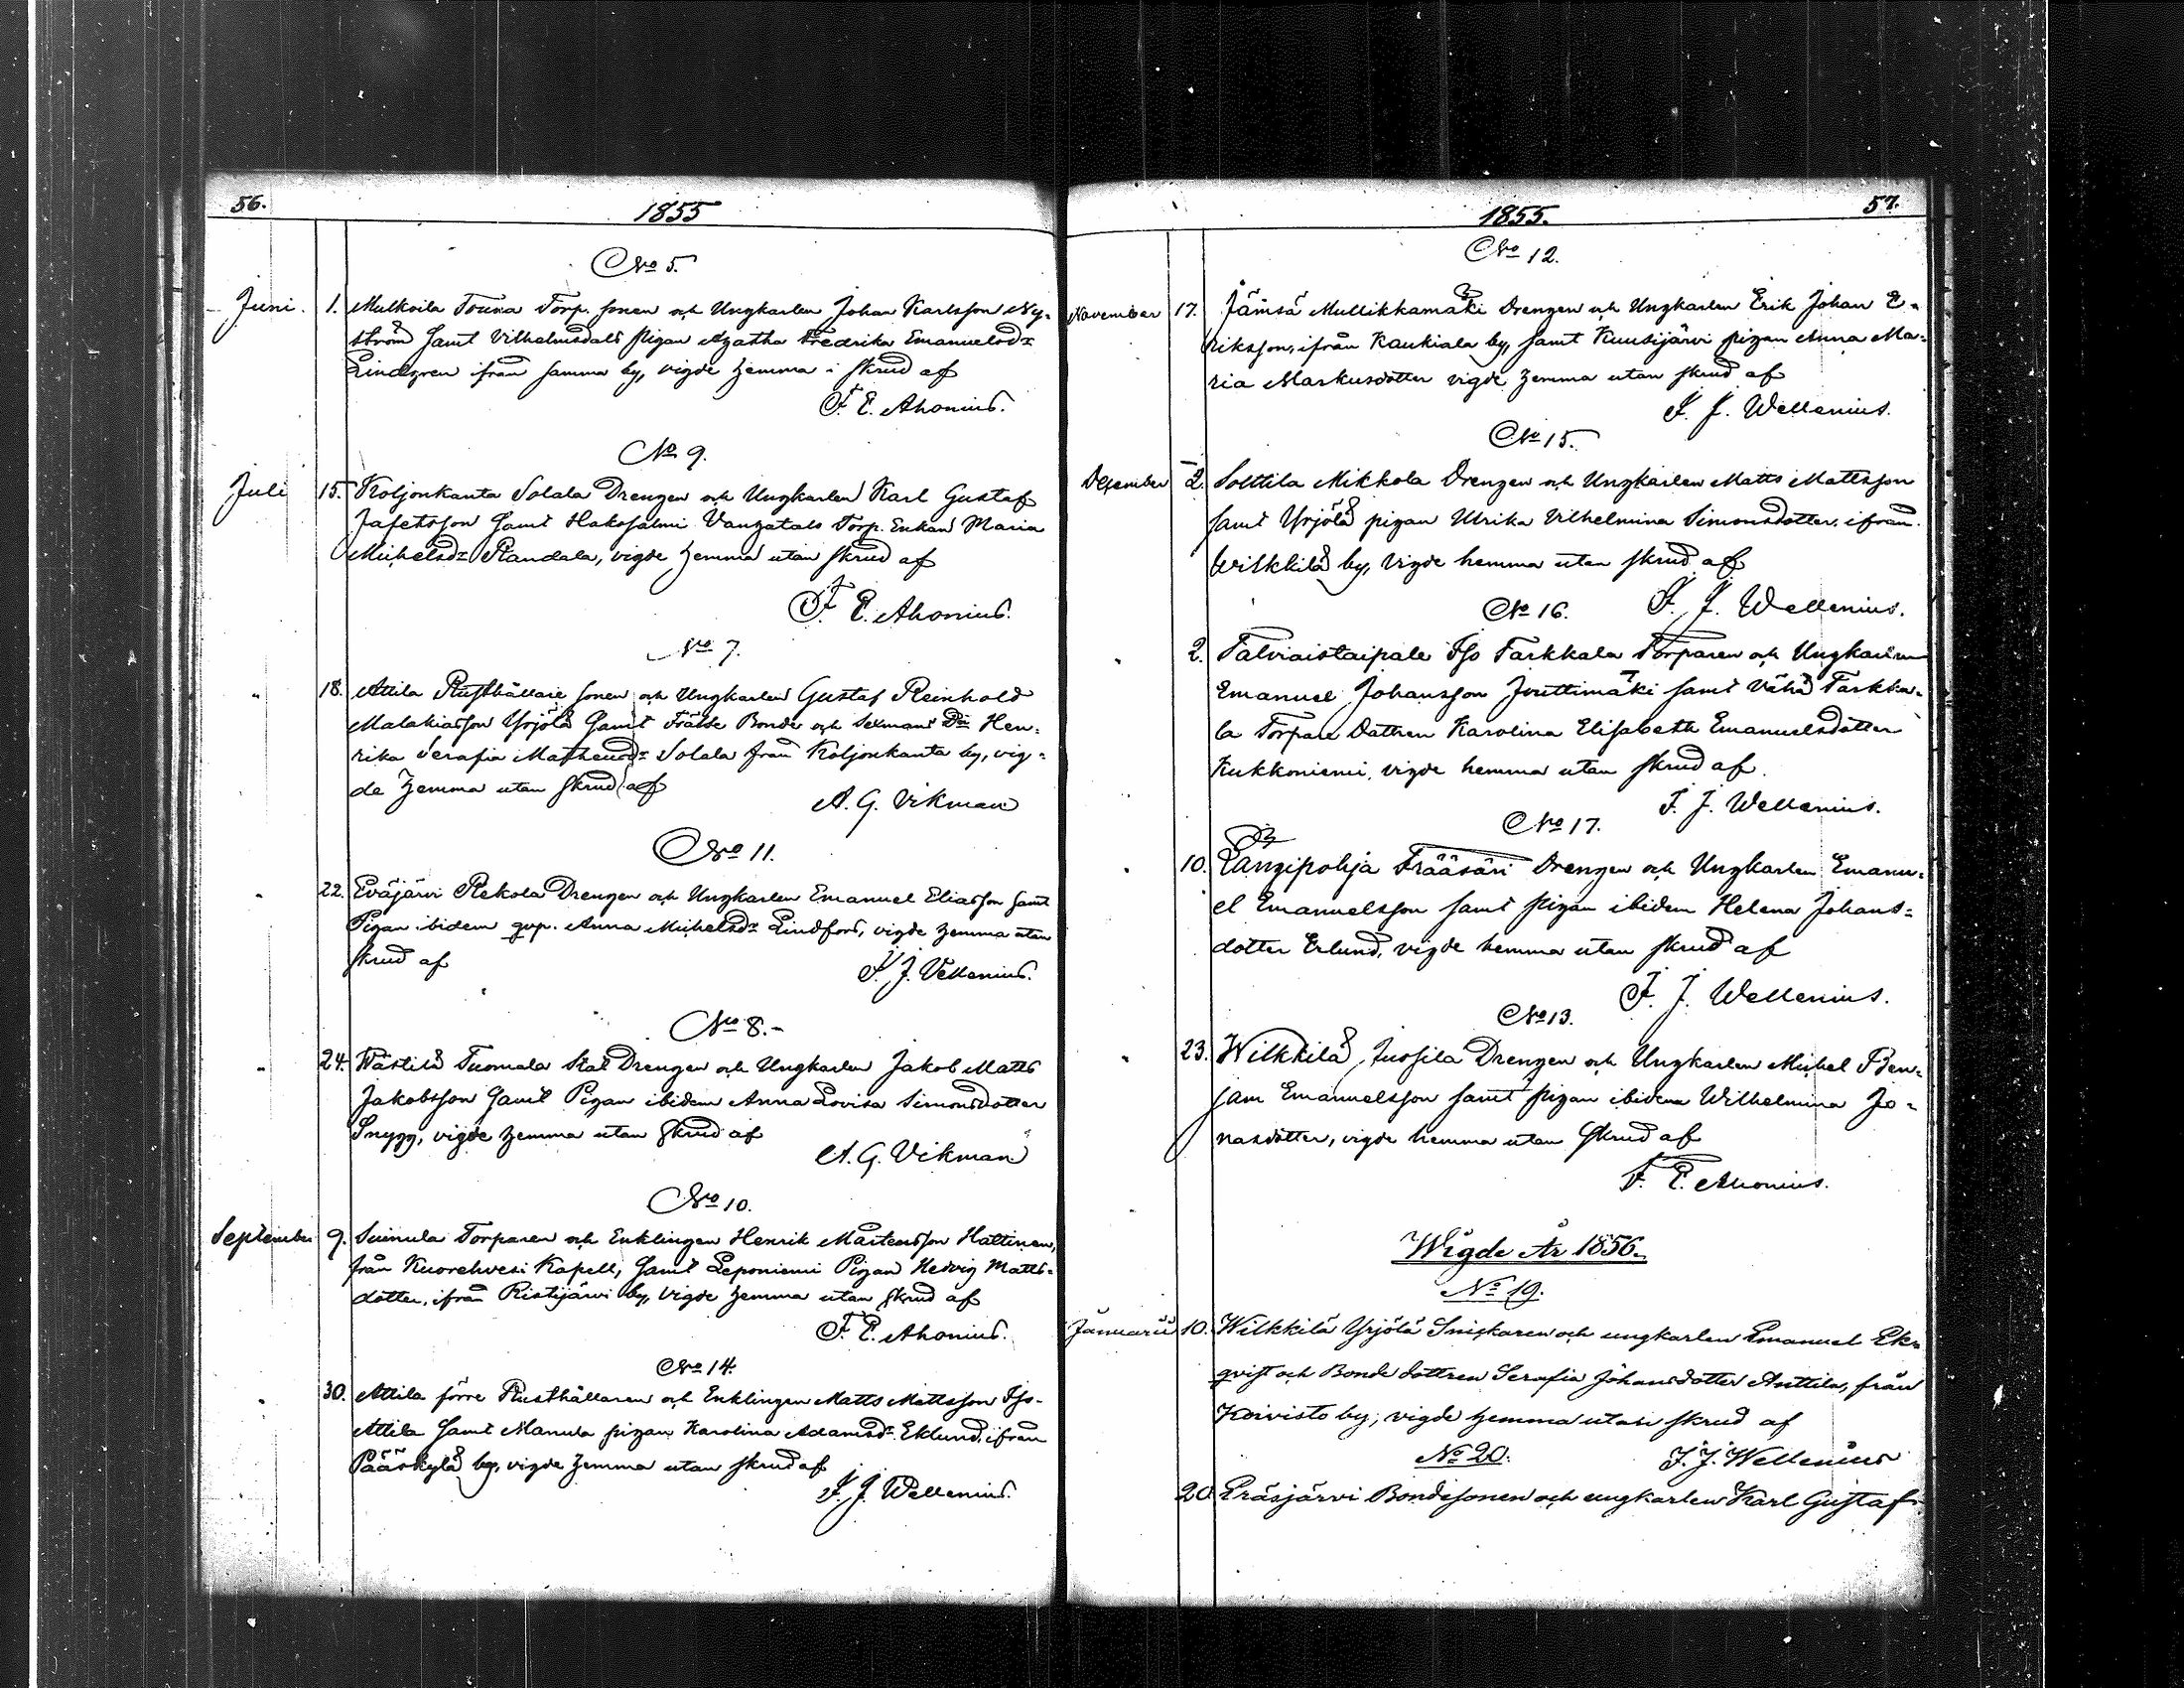 56.
1855
No 5.
Juni. 1. Mulkoila Touna Torp. sonen och Ungkarlen Johan Karlsson Ny-
ström samt Vilhelmsdals pigan Agatha Fredrika Emanuelsdr
Lindgren ifrån samma by, vigde hemma i skrud af
F. E. Ahonius.
No 9.
Juli 15. Koljonkanta Solala Drengen och Ungkarlen Karl Gustaf
Jafetsson samt Haksalmi Vangatals Torp. Enkan Maria
Michelsdr Randala, vigde hemma utan skrud af
F. E. Ahonius.
No 7.
" 18. Attila Rusthållare sonen och Ungkarlen Gustaf Reinhold
Malakiasson Yrjölä samt Frälse Bonde och Sexmans Dr Hen-
rika Serafia Matheusdr Solala från Koljonkanta by, vig-
de hemma utan skrud af
A. G. Vikman
No 11.
" 22. Eväjärvi Rekola Drengen och Ungkarlen Emanuel Eliasson samt
Pigan ibidem qvp. Anna Michelsdr Lindfors, vigde hemma utan
skrud af
F. J. Vellenius.
No 8.-
" 24. Västilä Tuomala Stal Drengen och Ungkarlen Jakob Matts
Jakobsson samt Pigan ibidem Anna Lovisa Simonsdotter
Snygg, vigde hemma utan skrud af
A. G. Vikman
No 10.
September 9. Suinula Torparen och Enklingen Henrik Mårtensson Hattinen,
från Kuorehvesi Kapell, samt Leponiemi Pigan Hedvig Matts-
dotter, ifrån Ristijärvi by, vigde hemma utan skrud af
F. E. Ahonius.
No 14.
" 30. Attila förre Rusthållaren och Enklingen Matts Mattsson Iso-
Attila samt Manula pigan Karolina Adamsdr Eklund, ifrån
Pääskylä by, vigde hemma utan skrud af
F. J. Wellenius.
1855.
57.
No 12.
November 17. Jämsä Mullikkamäki Drengen och Ungkarlen Erik Johan E-
riksson, ifrån Kaukiala by, samt Kuusijärvi pigan Anna Ma-
ria Markusdotter vigde hemma utan skrud af
F. J. Wellenius.
No 15.
December 2. Solttila Mikkola Drengen och Ungkarlen Matts Mattsson
samt Yrjölä pigan Ulrika Vilhelmina Simonsdotter, ifrån
Wilkkilä by, vigde hemma utan skrud af
F. J. Wellenius.
No 16.
" 2. Talviaistaipale Iso Tarkkala Torparen och Ungkarlen
Emanuel Johansson Jouttimäki samt Vähä Tarkka-
la Torpare Dottren Karolina Elisabeth Emanuelsdotter
Kukkoniemi, vigde hemma utan skrud af
F. J. Wellenius.
No 17.
" 10. Längipohja Frääsäri Drengen och Ungkarlen Emanu-
el Emanuelsson samt pigan ibidem Helena Johans-
dotter Erlund, vigde hemma utan skrud af
F. J. Wellenius.
No 13.
" 23. Wilkkilä Jussila Drengen och Ungkarlen Michel Ben-
jam Emanuelsson samt pigan ibidem Wilhelmina Jo-
nasdotter, vigde hemma utan skrud af
F. E. Ahonius.
Wigde År 1856.
No 19.
Januarii 10. Wilkkilä Yrjölä Snickaren och ungkarlen Emanuel Ek-
qvist och Bonde dottren Serafia Johansdotter Anttila, från
Koivisto by, vigde hemma utan skrud af
F. J. Wellenius
No 20.
20. Eräsjärvi Bondesonen och ungkarlen Karl Gustaf